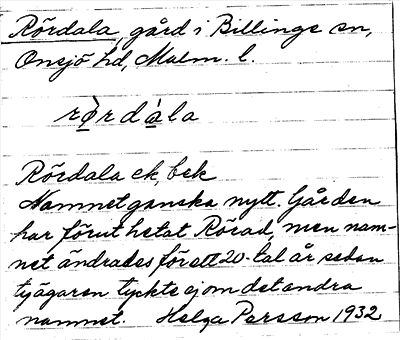 Rördala, gård i Billinge sn,
Onsjö hd, Malm. l.
rö̀rdάla
Rördala ek, bek
Namnet ganska nytt. Gården
har förut hetat Rörad, men nam-
net ändrades för ett 20-tal år sedan
ty ägaren tyckte ej om det andra
namnet. Helga Persson 1932